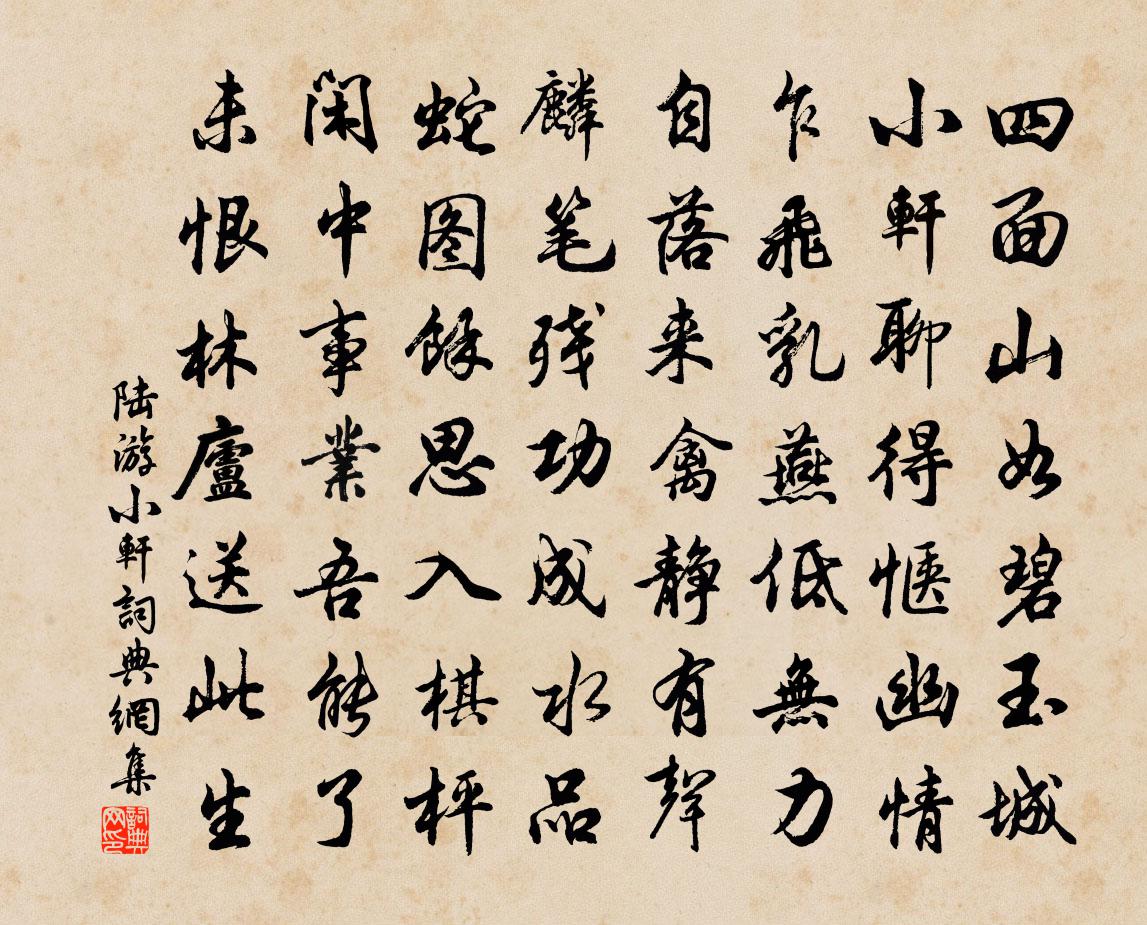 四面山如碧玉城
小軒聊得惬幽情
乍飛乳燕低無力
自落来禽静有聲
麟笔残功成水品
蛇图餘思入棋枰
閑中事業吾能了
未恨林廬送此生
陆游小軒詞典網集
詞典网印